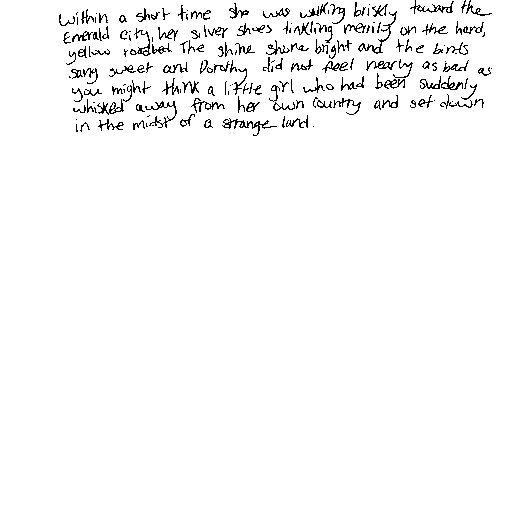 Within a short time she was walking briskly toward the
Emerald City, her silver shoes tinkling merrily on the hard,
yellow roadbed The shine shone bright and the birds
sang sweet and Dorothy did not feel nearly as bad as
you might think a little girl who had been suddenly
whisked away from her own country and set down
in the midst of a strange land.